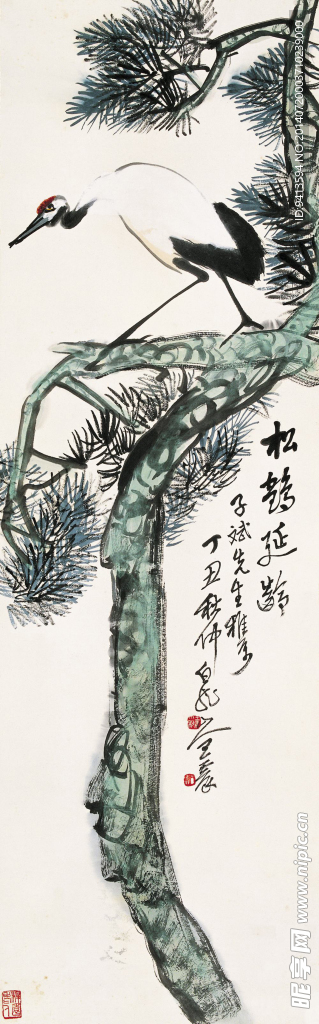 松鹤延龄
子斌先生雅示
丁丑秋仲白龙山人王震
ID:9413594 NO:20140720003710239000
昵享网 www.nipic.cn